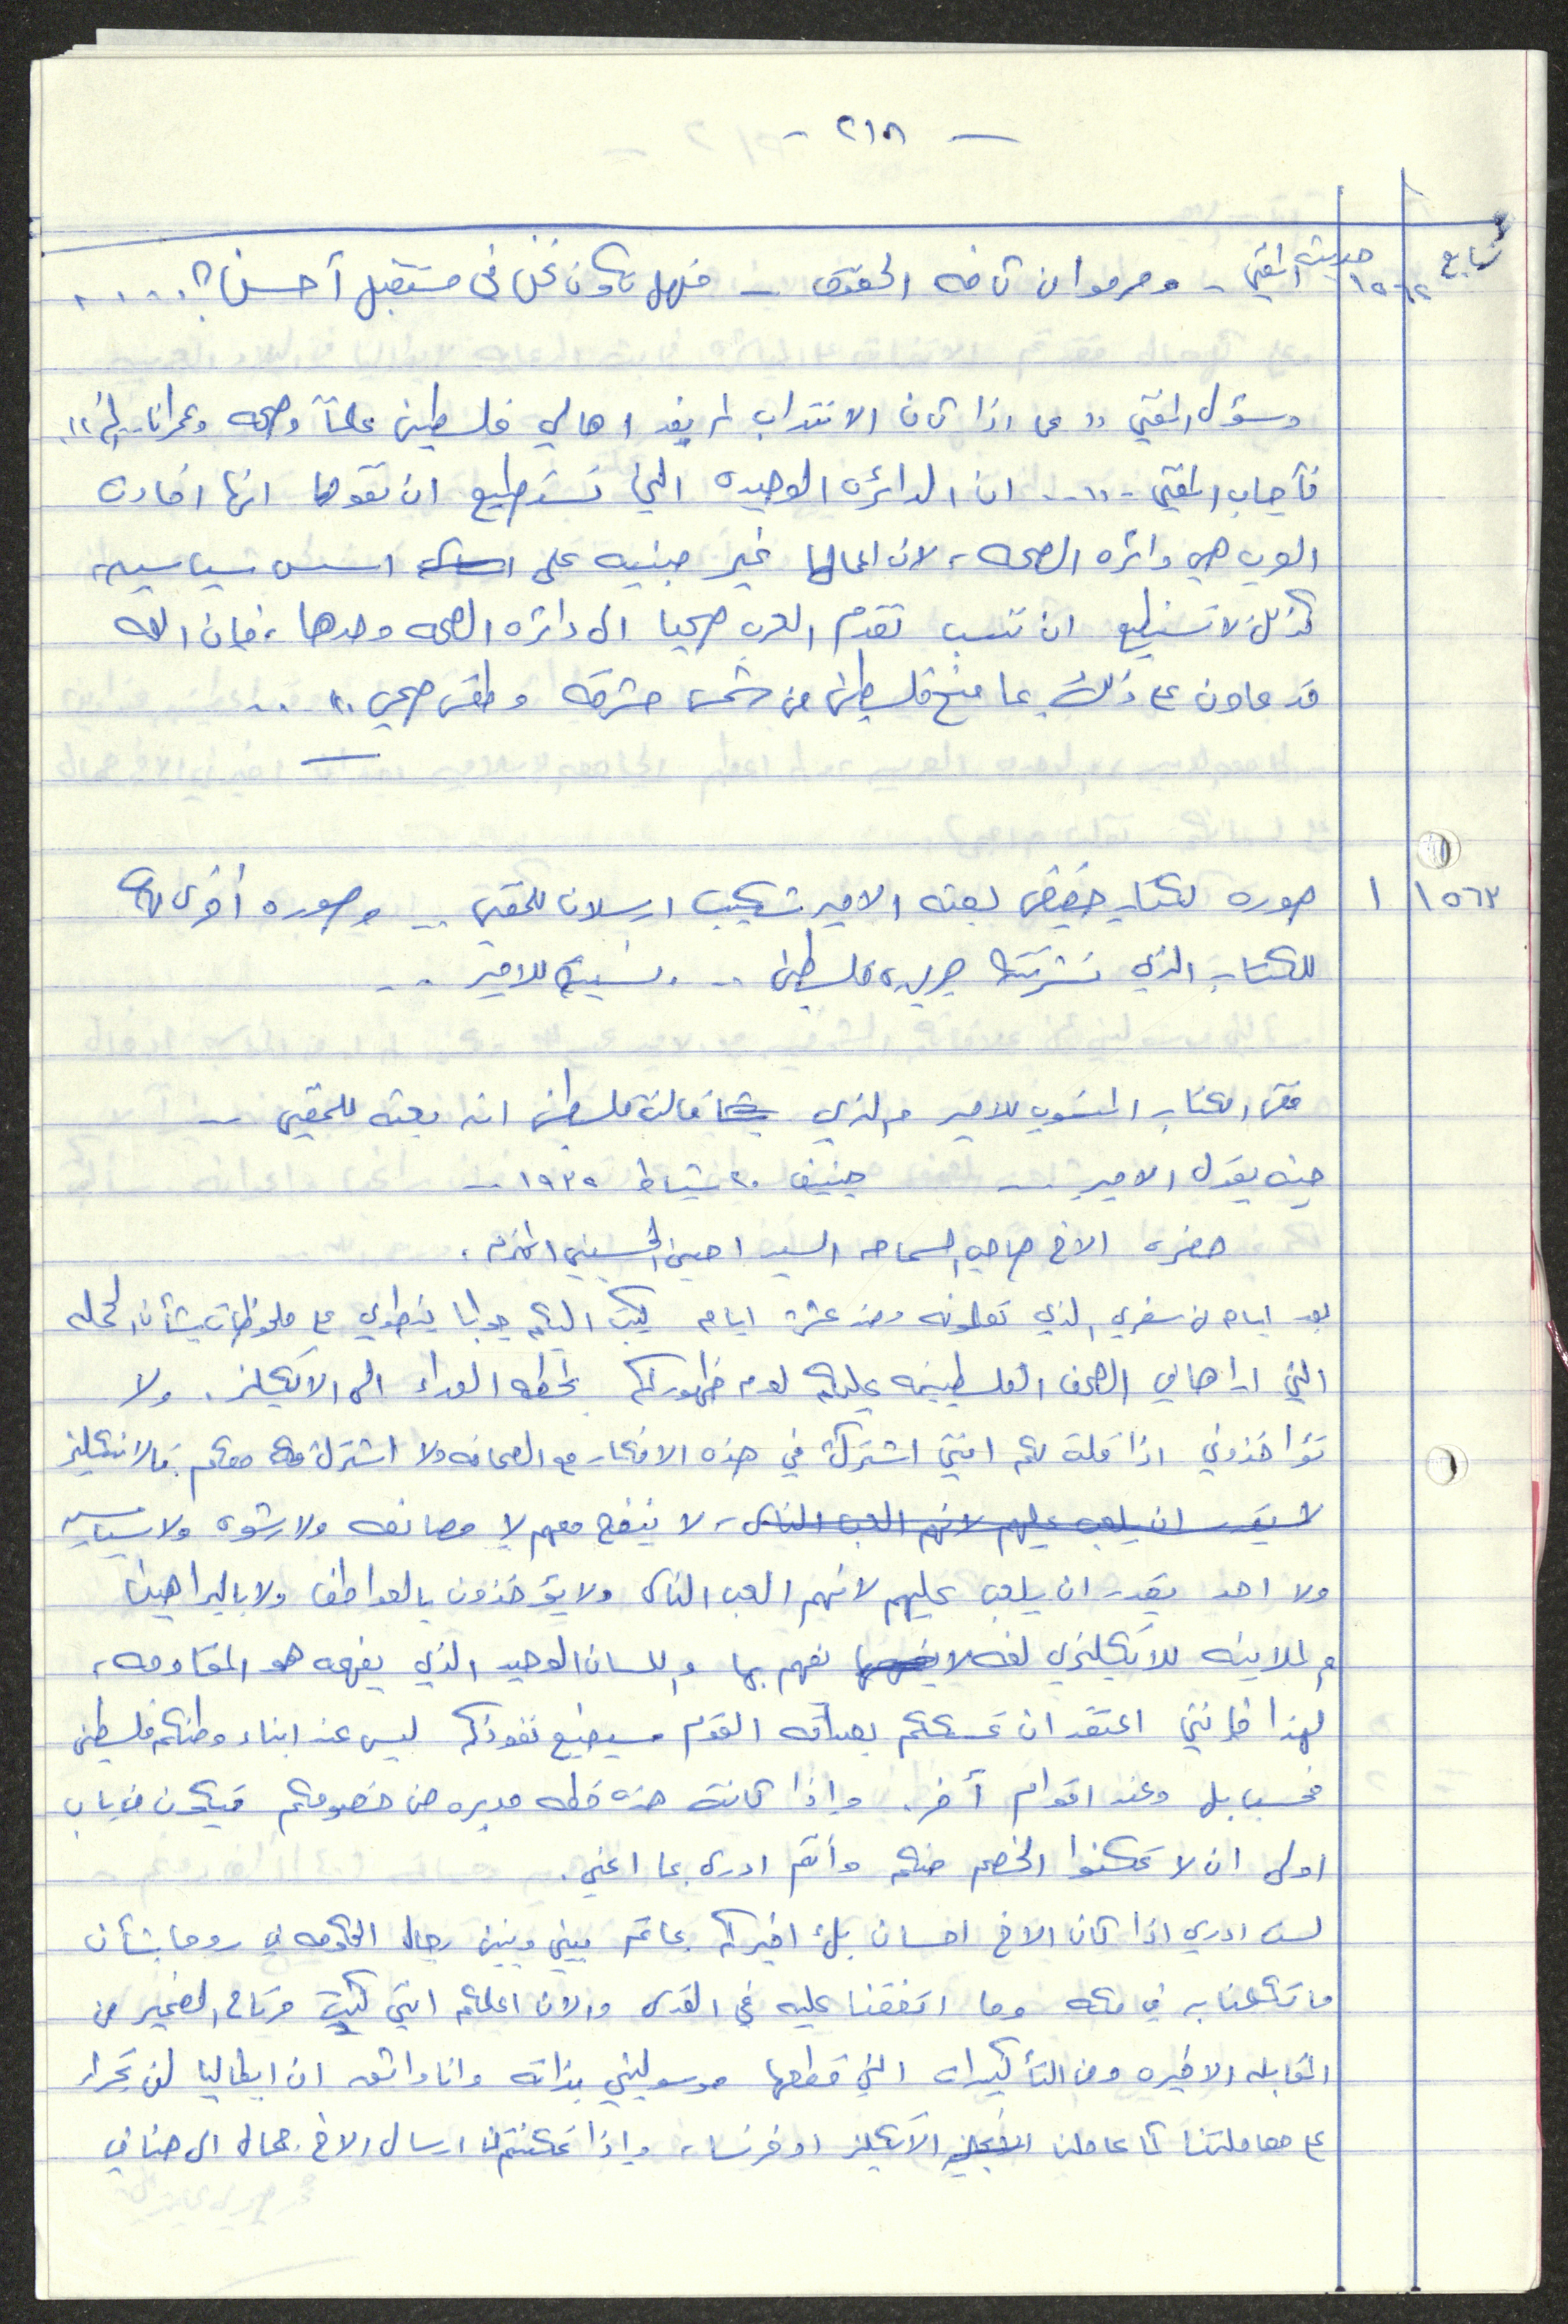 - ٢١٨ -
تابع ١٥٦٢ حديث المفتي - وحرموا من كافة الحقوق - فهل نكون نحن في مستقبل أحسن؟ ....
وسؤل المفتي " عما اذا كان الانتداب لم يفد اهالي فلسطين علماً وصحه وعمرانا .. الخ "
فأجاب المفتي - " .. ان الدائره الوحيده التي نستطيع ان نقول انها افادت
العرب هي دائره الصحه ، لان اعمالها غير مبنيه على اسس سياسيه ،
كذلك لا نستطيع ان ننسب تقدم العرب صحيا الى دائره الصحه وحدها ، فإن الله
قد عاون على ذلك بما منح فلسطين من شمس مشرقه وطقس صحي " ..
١٥٦٣ ١ صوره لكتاب حقيقي بعثه الامير شكيب ارسلان للمفتي .. وصوره أخرى
للكتاب الذي نشرته جريده فلسطين .. ونسبته للامير ..
فقي الكتاب المنسوب للامير والذي قالت فلسطين انه بعثه للمفتي ..
حيث يقول الامير .. جنيف ٢٠ شباط ١٩٣٥ ..
حضرة الاخ صاحب السماحه السيد امين الحسيني المحترم ،
بعد ايام من سفري الذي تعلمونه ومنذ عشرة ايام كتبت اليكم جوابا ينطوي على ملحوظات بشأن الحمله
التي اراها في الصحف الفلسطينيه عليكم لعدم ظهوركم بخطه العداء الى الانكليز . ولا
تؤاخذوني اذا قلت لكم انني اشترك في هذه الافكار مع الصحافه ولا اشترك معكم ، فالانكليز
لا يقدر ان يلعب عليهم لانهم العب الناس ، لا ينفع معهم لا مصانعه ولا رشوه ولا سياسيه
ولا احد يقدر ان يلعب عليهم لانهم العب الناس ولا يؤخذون بالعواطف ولا بالبراهين
والملاينه للانكليزي لغه لا يفهم بها واللسان الوحيد الذي يفهمه هو المقاومه ،
لهذا فإنني اعتقد ان تمسككم بصداقه القوم سيضيع نفوذكم ليس عند ابناء وطنكم فلسطين
فحسب بل وعند اقوام آخر . واذا كانت هذه خطه مدبره من خصومكم فيكون من باب
اولى ان لا تمكنوا الخصم منكم وأنتم ادرى بما اعني .
لست ادري اذا كان الاخ احسان بك اخبركم بما تم بيني وبين رجال الحكومه في روما بشأن
ما تكلمنا به في مكه وما اتفقنا عليه في القدس والان اعلمكم انني كنت مرتاح الضمير من
المقابله الاخيره ومن التأكيدات التي قطعها موسوليني بذاته وانا واثق ان ايطاليا لن تجرء
على معاملتنا كما عاملنا الانكليز او فرنسا ، واذا تمكنتم من ارسال الاخ جمال الى هنا في